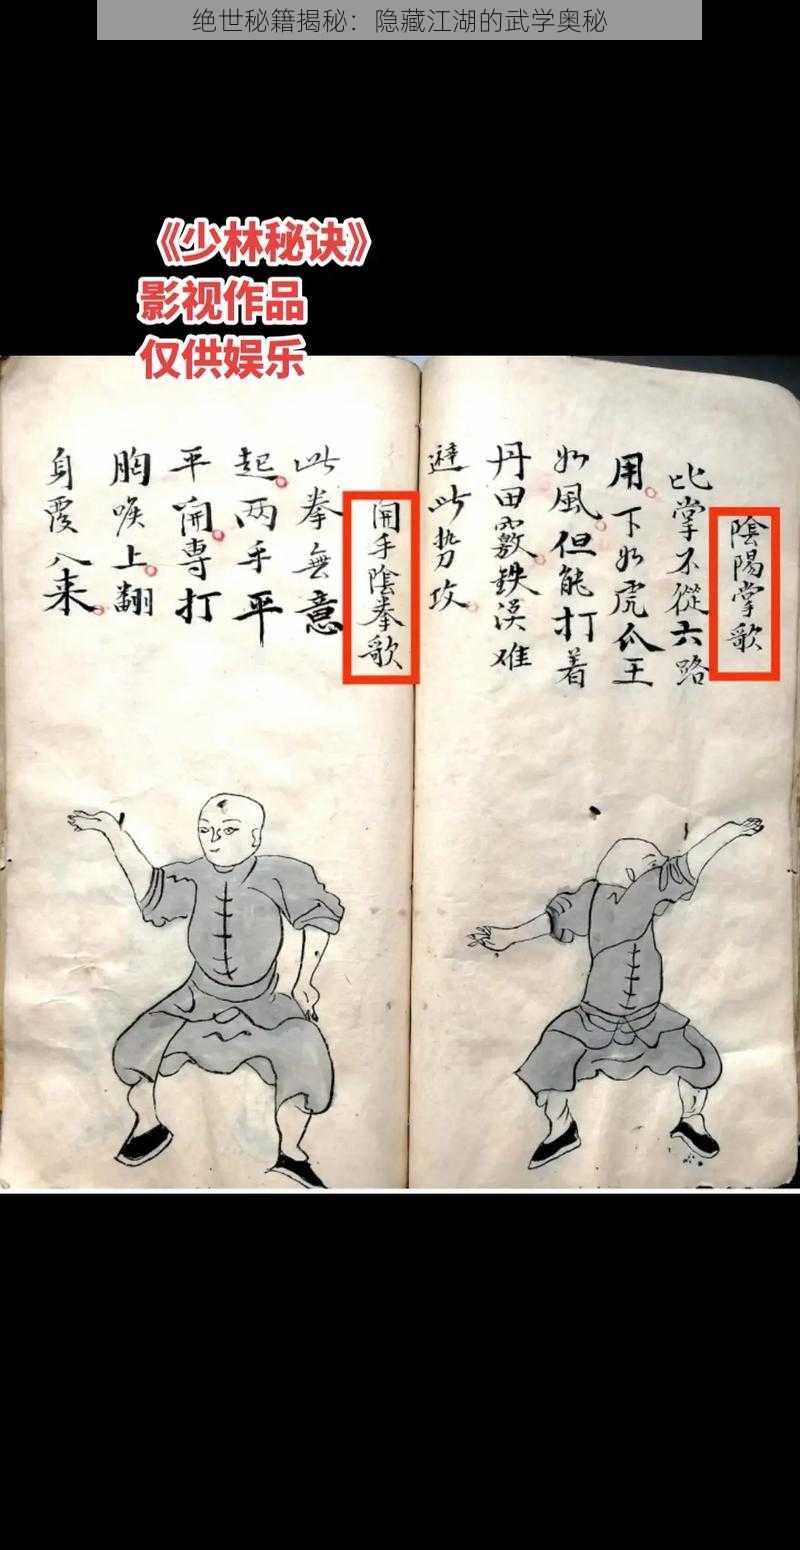 绝世秘籍揭秘：隐藏江湖的武学奥秘
《少林秘诀》
影视作品
仅供娱乐
陰陽掌歌
比掌不從六路
用。下如虎爪王
如風。但能打着
丹田竅。鉄漢难
避此势攻。
開手陰拳歌
此拳無意
起。两手平
平開。專打
胸喉上。翻
身覆入来。